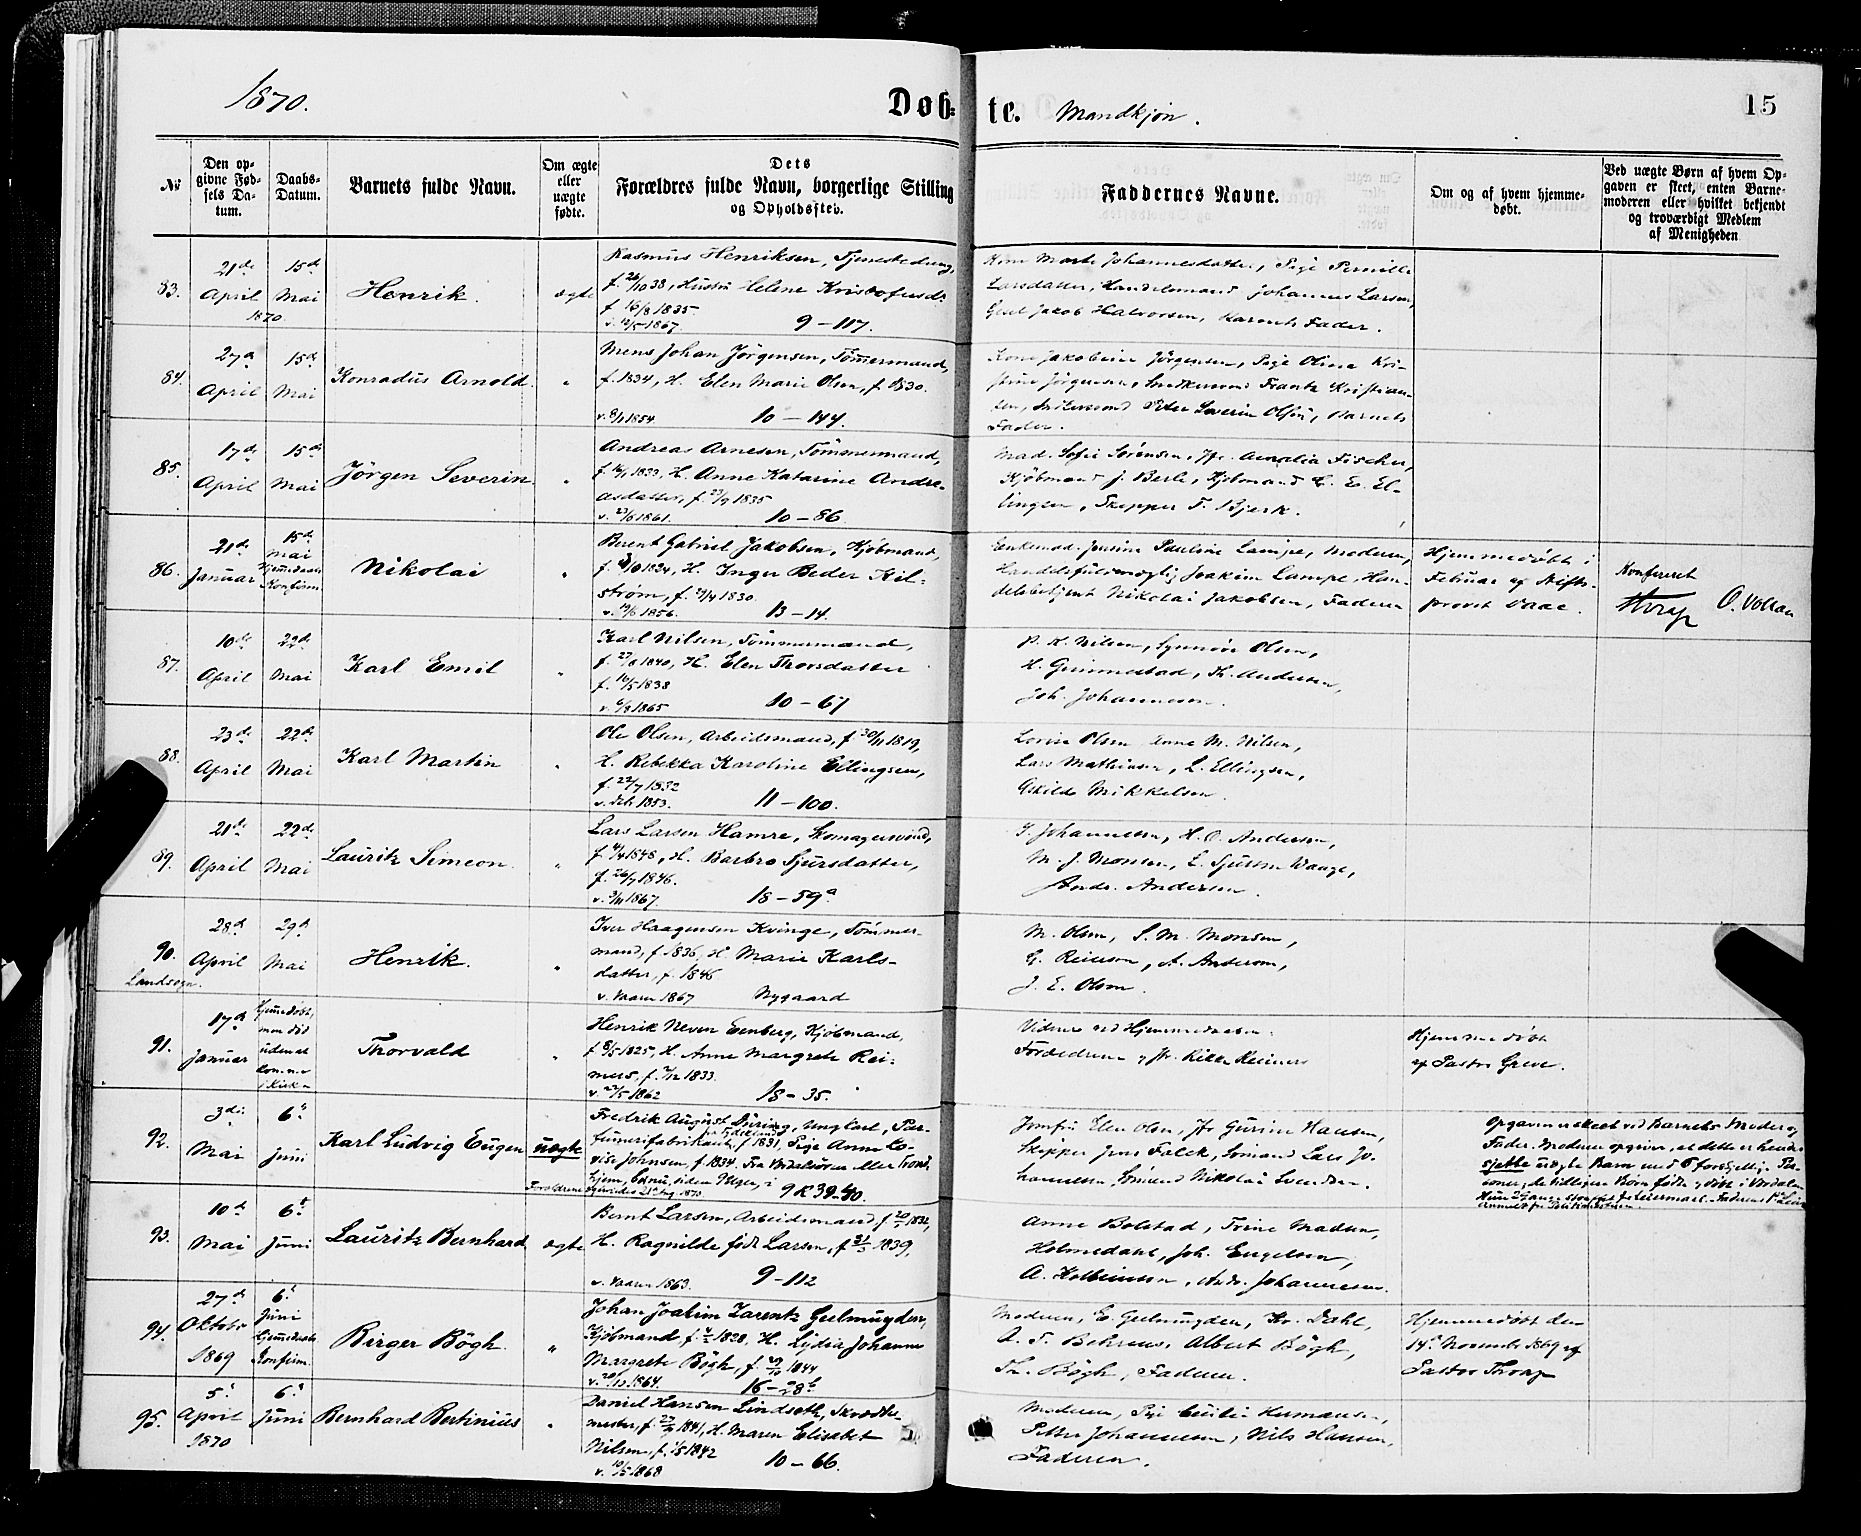 1870.
Døb-te. Mandkjøn.
15
№
Den opgivne Fødsels Datum.
Daabs-Datum.
Barnets fulde Navn.
Om ægte eller uægte fødte.
Dets Forældres fulde Navn, borgerlige Stilling og Opholdssted.
Faddernes Navne.
Om og af hvem hjemmedøbt.
Ved uægte Børn af hvem Opgaven er skeet, enten Barnemoderen eller hvilket bekjendt og troværdigt Medlem af Menigheden
83.
21de April 1870
15de Mai
Henrik.
ægte
Rasmus Henriksen, Tjenestedreng,
f. 26/10 38, Hustru Helene
f. 16/8 1835.
v. 12/5 1867. 9 – 117.
Kone Marte Johannesdatter, Pige Pernille
Larsdatter, Handelsmand Johannes Larsen,
Jakob Halvorsen, Barnets Fader.
84.
27de April
15de Mai
Konradus Arnold.
"
Mons Johan Jørgensen, Tømmermand,
f. 1834, H. Elen Marie Olsen, f. 1830.
v. 8/1 1854. 10 – 144.
Kone Jakobine Jørgensen, Pige Oline Kri-
stine Jørgensen, Frantz Kristian-
sen, Peter Severin Olsen, Barnets
Fader.
85.
17de April
15de Mai
Jörgen Severin.
"
Andreas Arnesen, Tömmermand,
1833, H. Anne Katarine Andre-
asdatter, f. 23/9 1835
v. 23/6 1861. 10 – 86.
Mad. Sofie Sørensen, Jfr. Amalia Fischer,
Kjöbmand J. Berle, Kjöbmand C. E. El-
lingsen, Skipper T. Bjerk.
86.
21de Januar
15de Mai
Nikolai
"
Berent Gabriel Jakobsen, Kjöbmand,
1824, H. Inger Beder Kil-
ström, f. 29/4 1830.
v. 19/6 1856. 13 – 14.
Enkemad. Pauline Lampe, Moderen,
Handelsfuldmægtig Joakim Lampe, Han-
delsbetjent Nikolai Jakobsen, Faderen
Hjemmedöbt i
Februar af Stifts-
provst
Konfereret
O. Vollan
87.
10de April
22de Mai
Karl Emil
"
Karl Nilsen, Tömmermand,
f. 27/8 1840, H. Elen Thorsdatter
f. 16/5 1838
v. 6/8 1865 10 – 67
P. K. Nilsen, Synnöve Olsen,
H. Grimmestad, K. Andersen,
Joh. Johannesen.
88.
23de April
22de Mai
Karl Martin
"
Ole Olsen, Arbeidsmand, f. 30/11 1819,
H. Rebekka Karoline Eilingsen,
f. 22/7 1832
v. 1853. 11 – 100.
Lovise Olsen Anne M. Nilsen,
Lars Mathiesen, L. Ellingsen,
Mikkelsen.
89.
21de April
22de Mai
Lauritz Simeon.
"
Lars Larsen Hamre, Skomagersvend,
1848, H. Barbro Sjursdatter,
f. 26/7 1846.
v. 3/11 1867. 18 – 59a
Johannesen, H. O. Andersen,
M. J. Monsen, L. Sjursen Waage,
Andr. Andersen.
90.
Landsogn.
28de April
29de Mai
Henrik.
"
Iver Haagensen Kvinge, Tömmer-
mand, f. 1836, H. Marie Karls-
datter, f. 1846
v. Vaaren 1867 Nygaard
M. Olsen, S. M. Monsen,
G. Reierson, A. Andersen,
J. E. Olsen.
91.
17de Januar
Hjemmedöbt, men död
Thorvald
"
Henrik Neven Eenberg, Kjöbmand,
f. 8/5 1825, H. Anne Margrete Rei-
mers, f. 7/12 1833.
v. 27/5 1862 18 – 35.
Vidner ved Hjemmedaaben:
Forældrene og Fr. Rikke Reimers
Hjemmedöbt
af Pastor Greve.
92.
3die Mai
6te Juni
Karl Ludvig Eugen
uægte
Fredrik August Düring, Ungkarl, Par-
fumerifabrikant, f. 1831, Pige Anne Lo-
vise Johnsen, f. 1834. Fra Værdalsören eller Trond-
hjem,
9 R 39.40.
Jomfru Elen Olsen, Jfr Gurine Hansen,
Skipper Jens Falck, Sömand Lars Jo-
hannesen, Sömand Nikolai Svendsen.
Opgaven er skeet ved Barnets Moder og
Fader. Moderen opgiver, at dette er hendes
sjette uægte Barn med
93.
10de Mai
6te Juni
Lauritz Bernhard
ægte
Bernt Larsen, Arbeidsmand, 1832,
H. Ragnilde födt Larsen, f. 31/3 1839,
v. Vaaren 1863. 9 – 112
Anne Bolstad, Trine Madsen,
Holmedahl, Joh. Engelsen,
A. Kolbeinsen, Andr. Johannesen.
94.
27de Oktober 1869
6te Juni
Birger Bögh.
"
Johan Joakim Larentz Geelmuyden,
Kjöbmand, 1828, H. Lydia Johanne
Margrete Bögh, 1844
1864. 16 – 28b
Moderen, E. Geelmuyden, Kr. Dahl,
A. T. Behrens, Albert Bögh,
Th. Bögh, Faderen.
Hjemmedöbt den
14de November 1869 af
Pastor Thorp
95.
5te April 1870
6te Juni
Bernhard Bertinius
"
Daniel Hansen Lindseth, Skrædder-
mester, 1841, H. Maren Elisabet
Nilsen, 1842
v. 10/5 1868 10 – 66.
Moderen, Pige Cecilie Hermansen,
Petter Johannesen, Nils Hansen,
Faderen.